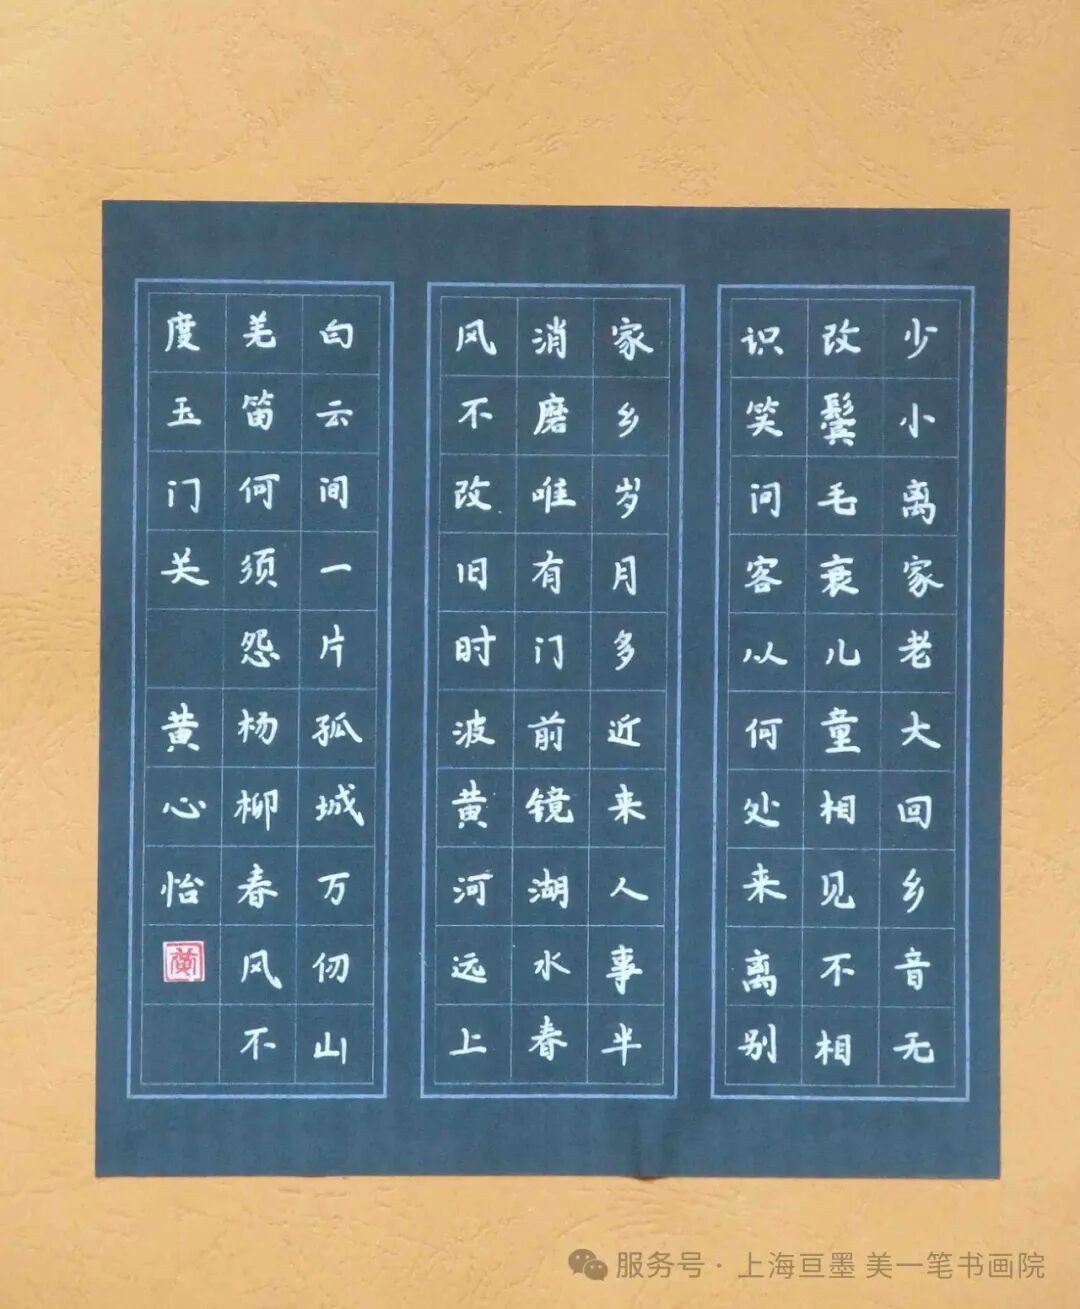 少小离家老大回乡音无
改鬓毛衰儿童相见不相
识笑问客以何处来离别
家乡岁月多近来人事半
消磨唯有门前镜湖水春
风不改旧时波黄河远上
白云间一片孤城万仞山
羌笛何须怨杨柳春风不
度玉门关 黄心怡
黄
服务号·上海亘墨 美一笔书画院